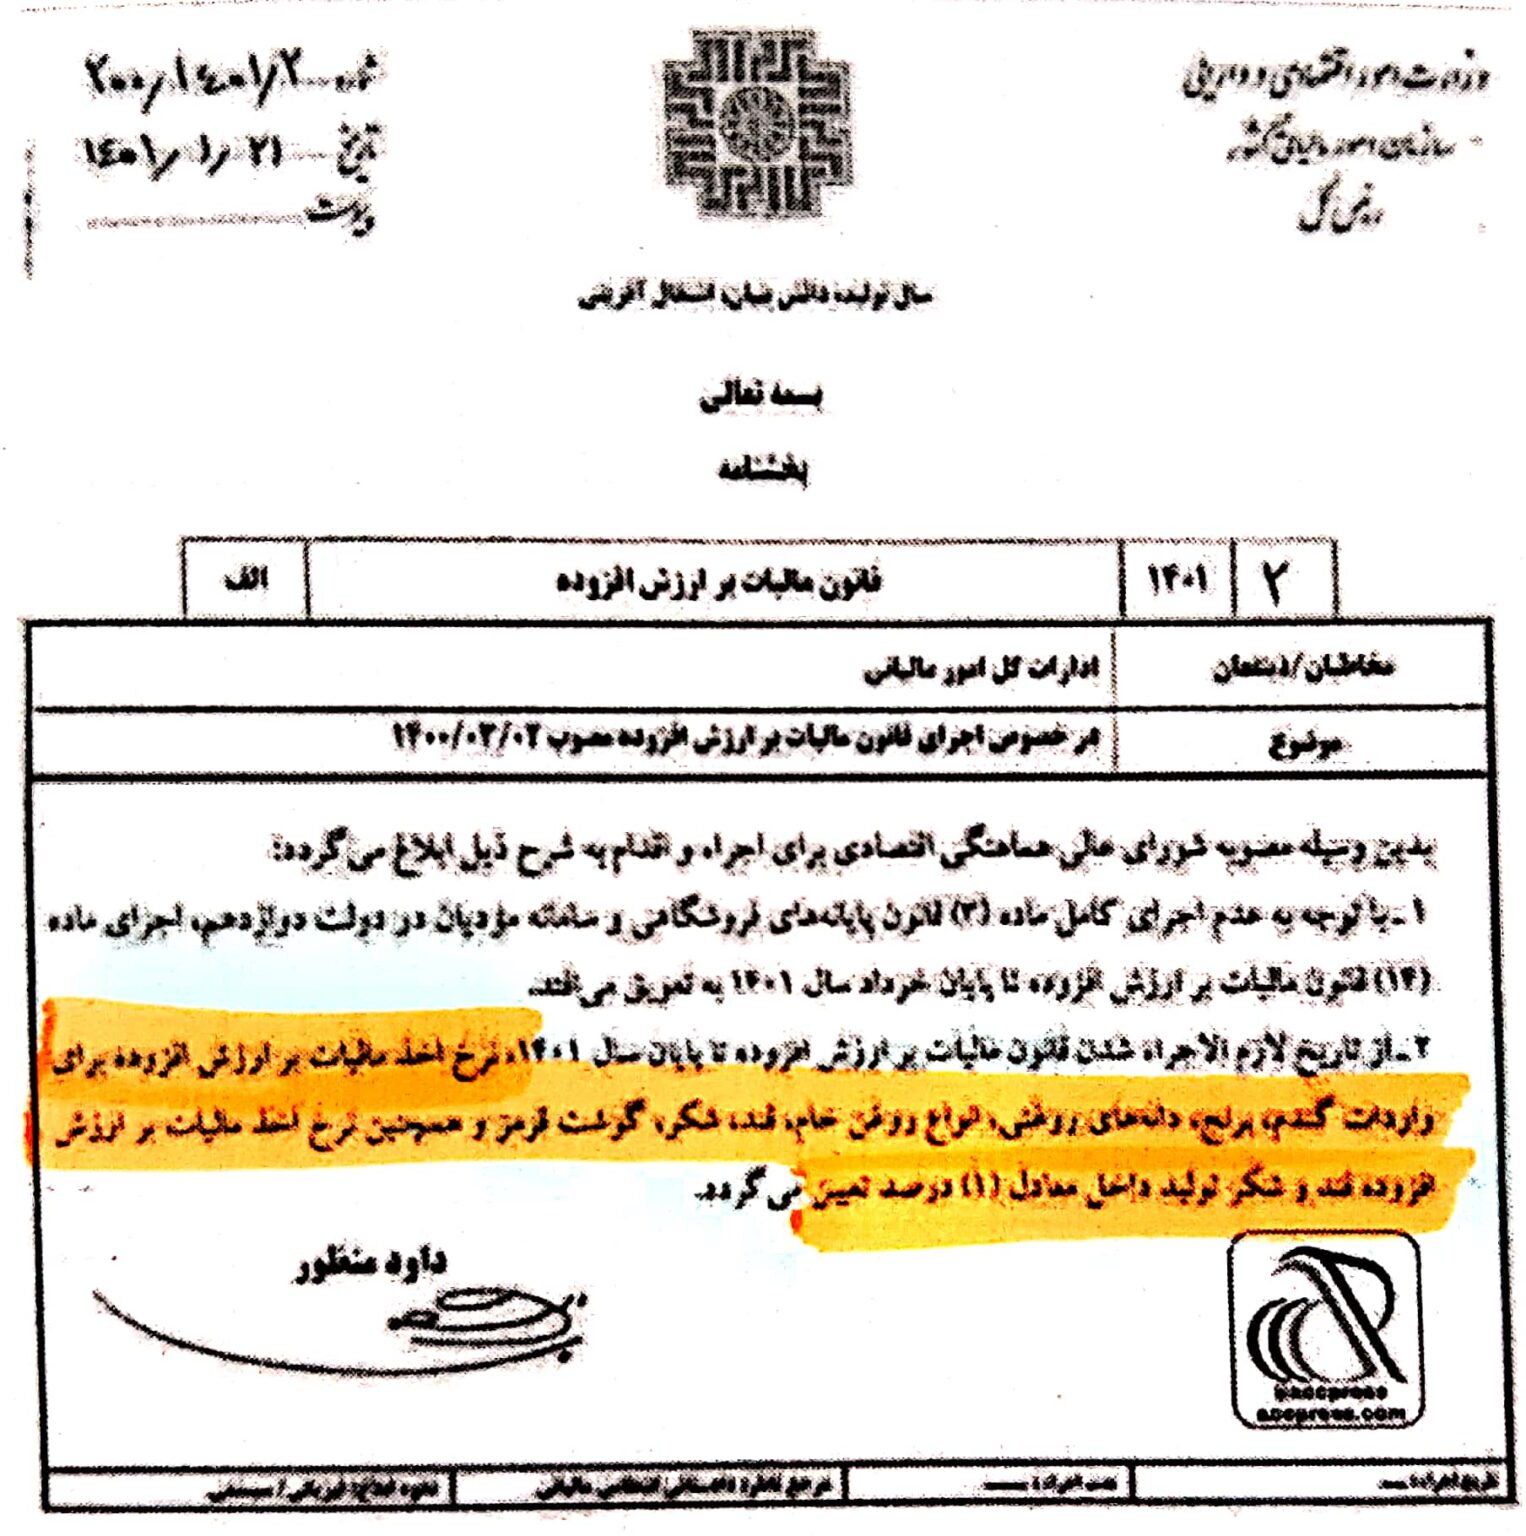 وزارت امور اقتصادی و دارایی
سازمان امور مالیاتی کشور
رئیس کل
شماره ۲۰۰/۱۴۰۱/۲
تاریخ ۱۴۰۱/۱/۲۱
پیوست
سال تولید، دانش بنیان، اشتغال آفرینی
بسمه تعالی
بخشنامه
۲ ۱۴۰۱ قانون مالیات بر ارزش افزوده الف
مخاطبان/ذینفعان ادارات کل امور مالیاتی
موضوع در خصوص اجرای قانون مالیات بر ارزش افزوده مصوب ۱۴۰۰/۰۳/۰۲
بدین وسیله مصوبه شورای عالی هماهنگی اقتصادی برای اجراء و اقدام به شرح ذیل ابلاغ می‌گردد:
۱ـ با توجه به عدم اجرای کامل ماده (۳) قانون پایانه‌های فروشگاهی و سامانه مؤدیان در دولت دوازدهم، اجرای ماده
(۱۴) قانون مالیات بر ارزش افزوده تا پایان خرداد سال ۱۴۰۱ به تعویق می‌افتد.
۲ـ از تاریخ لازم الاجراء شدن قانون مالیات بر ارزش افزوده تا پایان سال ۱۴۰۱، نرخ اخذ مالیات بر ارزش افزوده برای
واردات گندم، برنج، دانه‌های روغنی، انواع روغن خام، قند، شکر، گوشت قرمز و همچنین نرخ اخذ مالیات بر ارزش
افزوده قند و شکر تولید داخل معادل (۱) درصد تعیین می گردد.
داود منظور
@accpress
accpress.com
تاریخ اجراء: مدت اجراء: مرجع ناظر: دادستانی انتظامی مالیاتی نحوه ابلاغ: فیزیکی / سیستمی